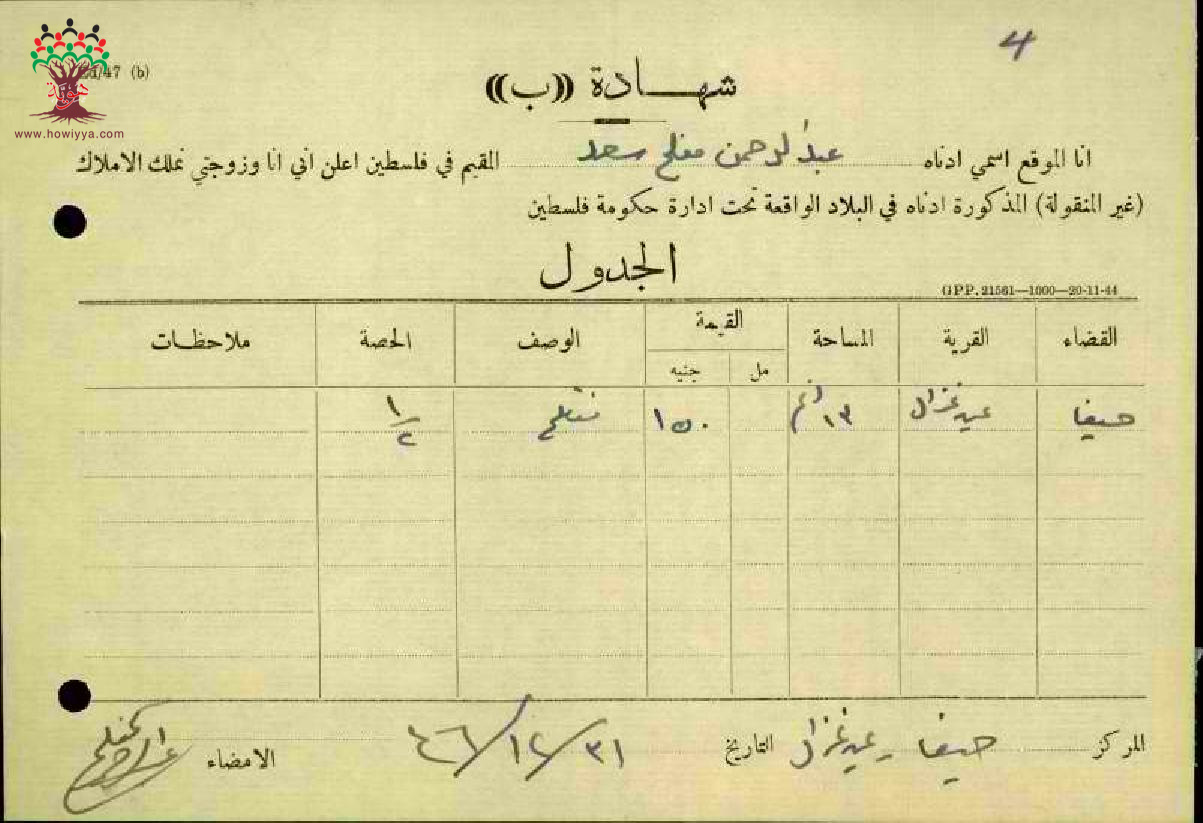 4
/47 (b)
هوية
www.howiyya.com
شهادة ((ب))
انا الموقع اسمي ادناه عبد الرحمن مفلح سعد المقيم في فلسطين اعلن اني انا وزوجتي نملك الاملاك
(غير المنقولة) المذكورة ادناه في البلاد الواقعة تحت ادارة حكومة فلسطين
الجدول
G.P.P. 21561—1000—20-11-44
القضاء القرية المساحة القيمة الوصف الحصة ملاحظات
مل جنيه
حيفا عين غزال ١٣ ١٥٠ ١/٢
المركز حيفا - عين غزال التاريخ ٣١/١٢/٤٦ الامضاء